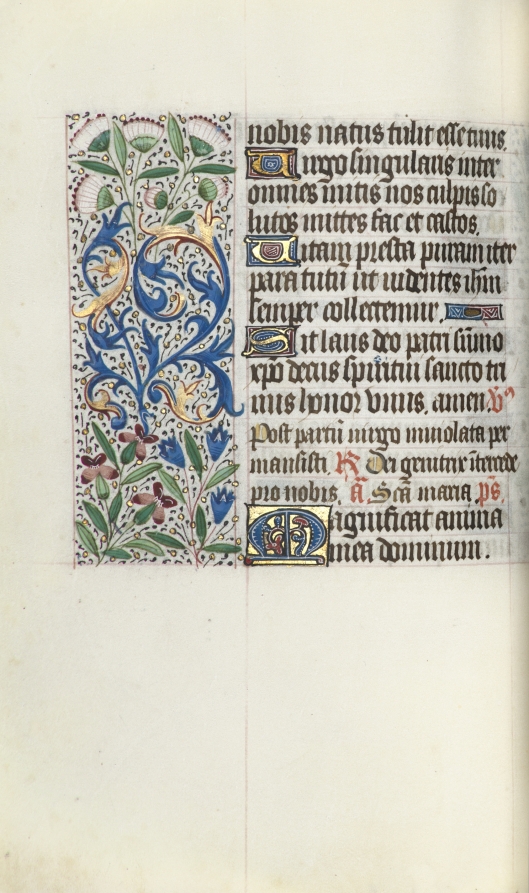 nobis natus tulit esse tuus.
Uirgo singularis inter
omnes mitis nos culpis so
lutos mittes fac et castos.
Uitam presta puram iter
para tutũ ut uidentes ihm̃
semper collectemur.
Sit laus deo patri sũmo
xp̃o decus spiritui sancto tri
nus honor vnus. amen. V̾
Post partũ uirgo inuiolata per
mansisti. R̾ Dei genitrix ĩtercede
pro nobis. ã Scã maria p̃s
Magnificat anima
mea dominum.